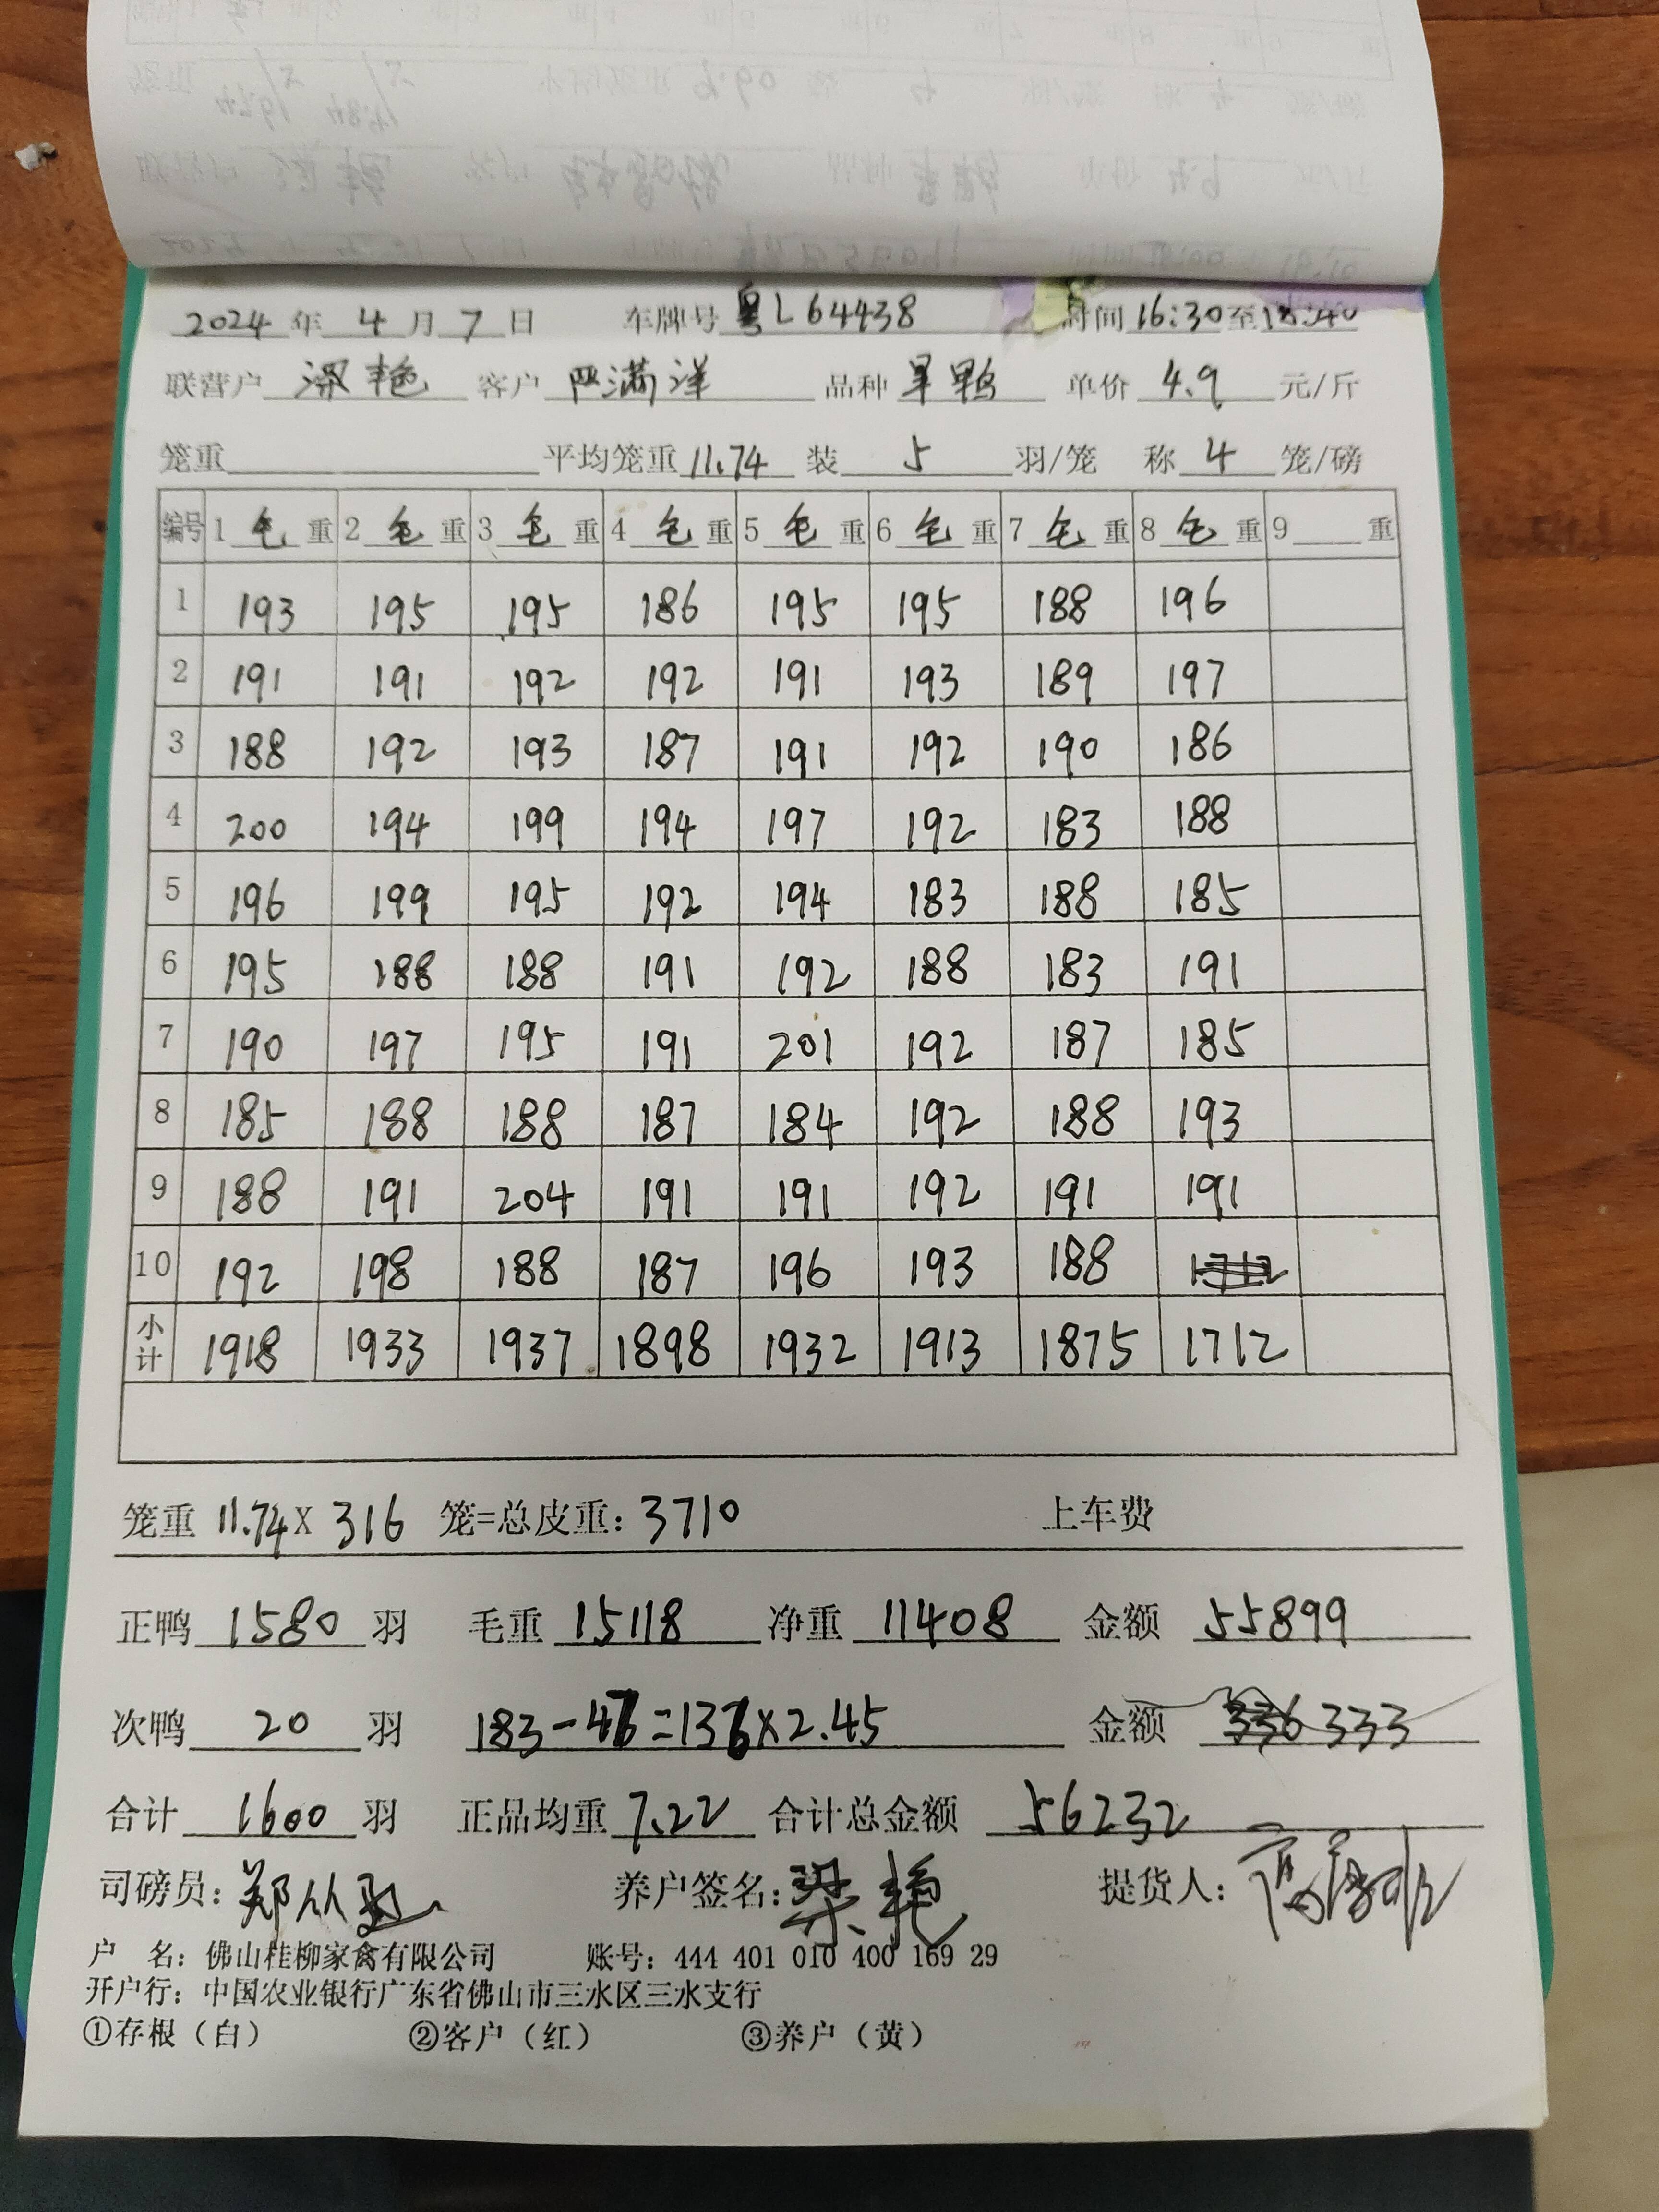 2024 年 4 月 7 日 车牌号 粤L64438 时间 16:30 至 18:40
联营户 梁艳 客户 严满洋 品种 旱鸭 单价 4.9 元/斤
笼重 平均笼重 11.74 装 5 羽/笼 称 4 笼/磅
编号 1 毛 重 2 毛 重 3 毛 重 4 毛 重 5 毛 重 6 毛 重 7 毛 重 8 毛 重 9 重
1 193 195 195 186 195 195 188 196
2 191 191 192 192 191 193 189 197
3 188 192 193 187 191 192 190 186
4 200 194 199 194 197 192 183 188
5 196 199 195 192 194 183 188 185
6 195 188 188 191 192 188 183 191
7 190 197 195 191 201 192 187 185
8 185 188 188 187 184 192 188 193
9 188 191 204 191 191 192 191 191
10 192 198 188 187 196 193 188
小计 1918 1933 1937 1898 1932 1913 1875 1712
笼重 11.74X 316 笼=总皮重: 3710 上车费
正鸭 1580 羽 毛重 15118 净重 11408 金额 55899
次鸭 20 羽 183-47=136×2.45 金额 333
合计 1600 羽 正品均重 7.22 合计总金额 56232
司磅员: 郑 养户签名: 梁艳 提货人:
户 名: 佛山桂柳家禽有限公司 账号: 444 401 010 400 169 29
开户行: 中国农业银行广东省佛山市三水区三水支行
①存根（白） ②客户（红） ③养户（黄）